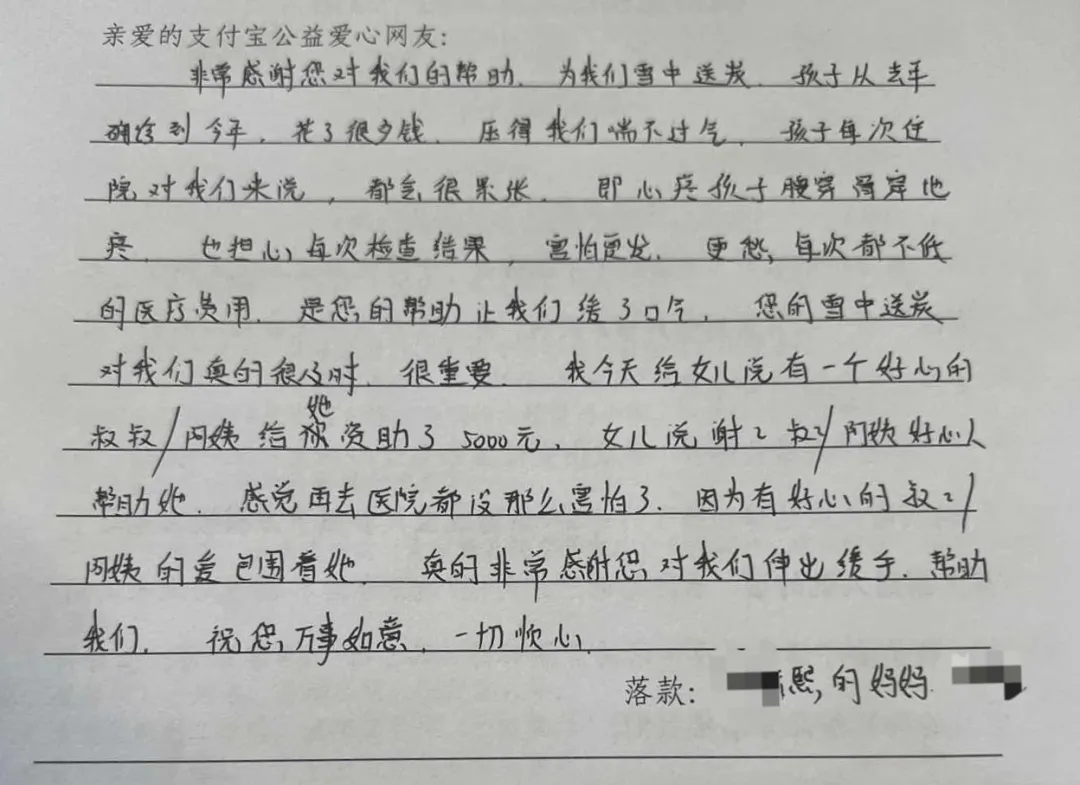 亲爱的支付宝公益爱心网友:
非常感谢您对我们的帮助. 为我们雪中送炭. 孩子从去年
确诊到今年, 花了很多钱. 压得我们喘不过气. 孩子每次住
院对我们来说, 都会很紧张. 即心疼孩子腰穿骨穿地
疼. 也担心每次检查结果, 害怕复发. 更愁, 每次都不低
的医疗费用. 是您的帮助让我们缓了口气. 您的雪中送炭
对我们真的很及时. 很重要. 我今天给女儿说有一个好心的
叔叔/阿姨给她资助了5000元. 女儿说谢谢叔叔/阿姨好心人
帮助她. 感觉再去医院都没那么害怕了. 因为有好心的叔叔/
阿姨的爱包围着她. 真的非常感谢您对我们伸出援手. 帮助
我们. 祝您万事如意, 一切顺心.
落款: 熙的妈妈.